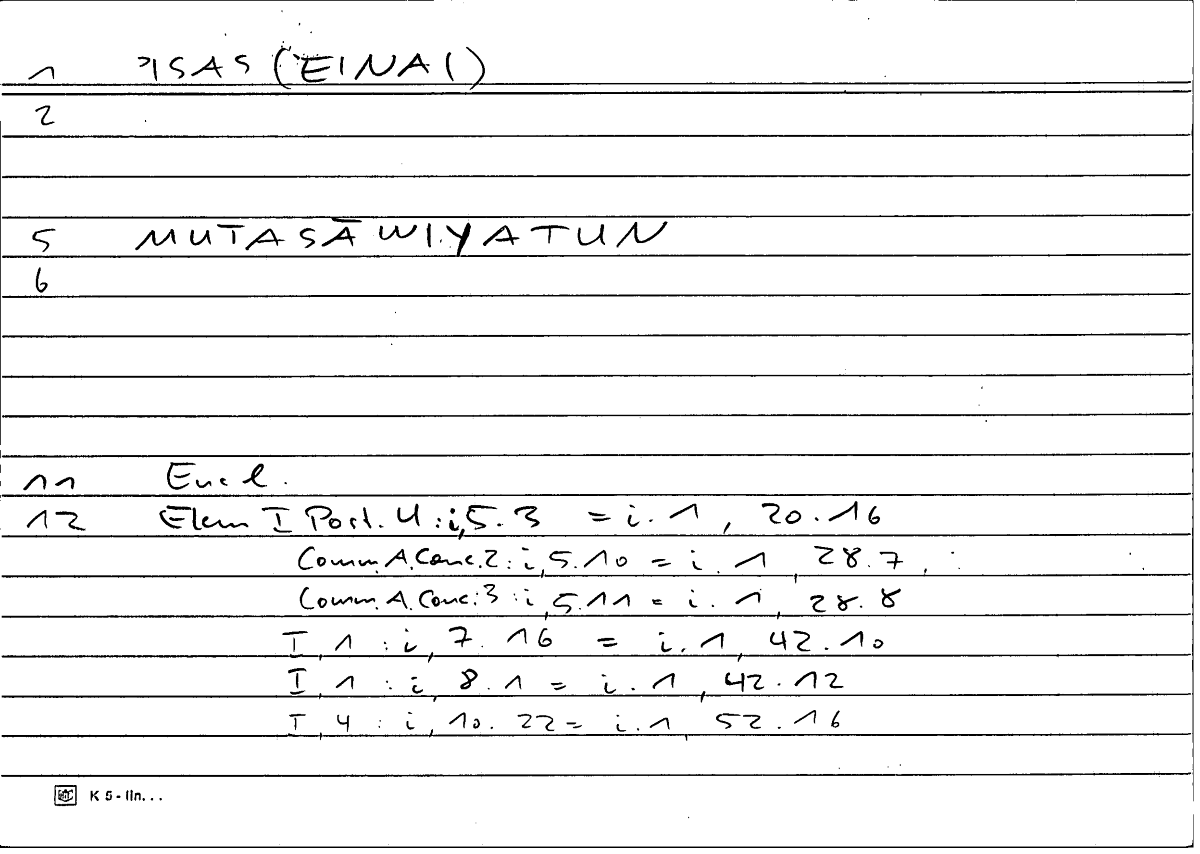 1 ʾISAS (EINAI)
2
5 MUTASĀWIYATUN
6
11 Eucl.
12 Elem I Post. 4 : i, 5.3 = i.1, 20.16
Comm. A. Conc. 2 : i, 5.10 = i.1, 28.7,
Comm. A. Conc. 3 : i, 5.11 = i.1, 28.8
I, 1 : i, 7.16 = i.1, 42.10
I, 1 : i, 8.1 = i.1, 42.12
I, 4 : i, 10.22 = i.1, 52.16
K 5 - lin...